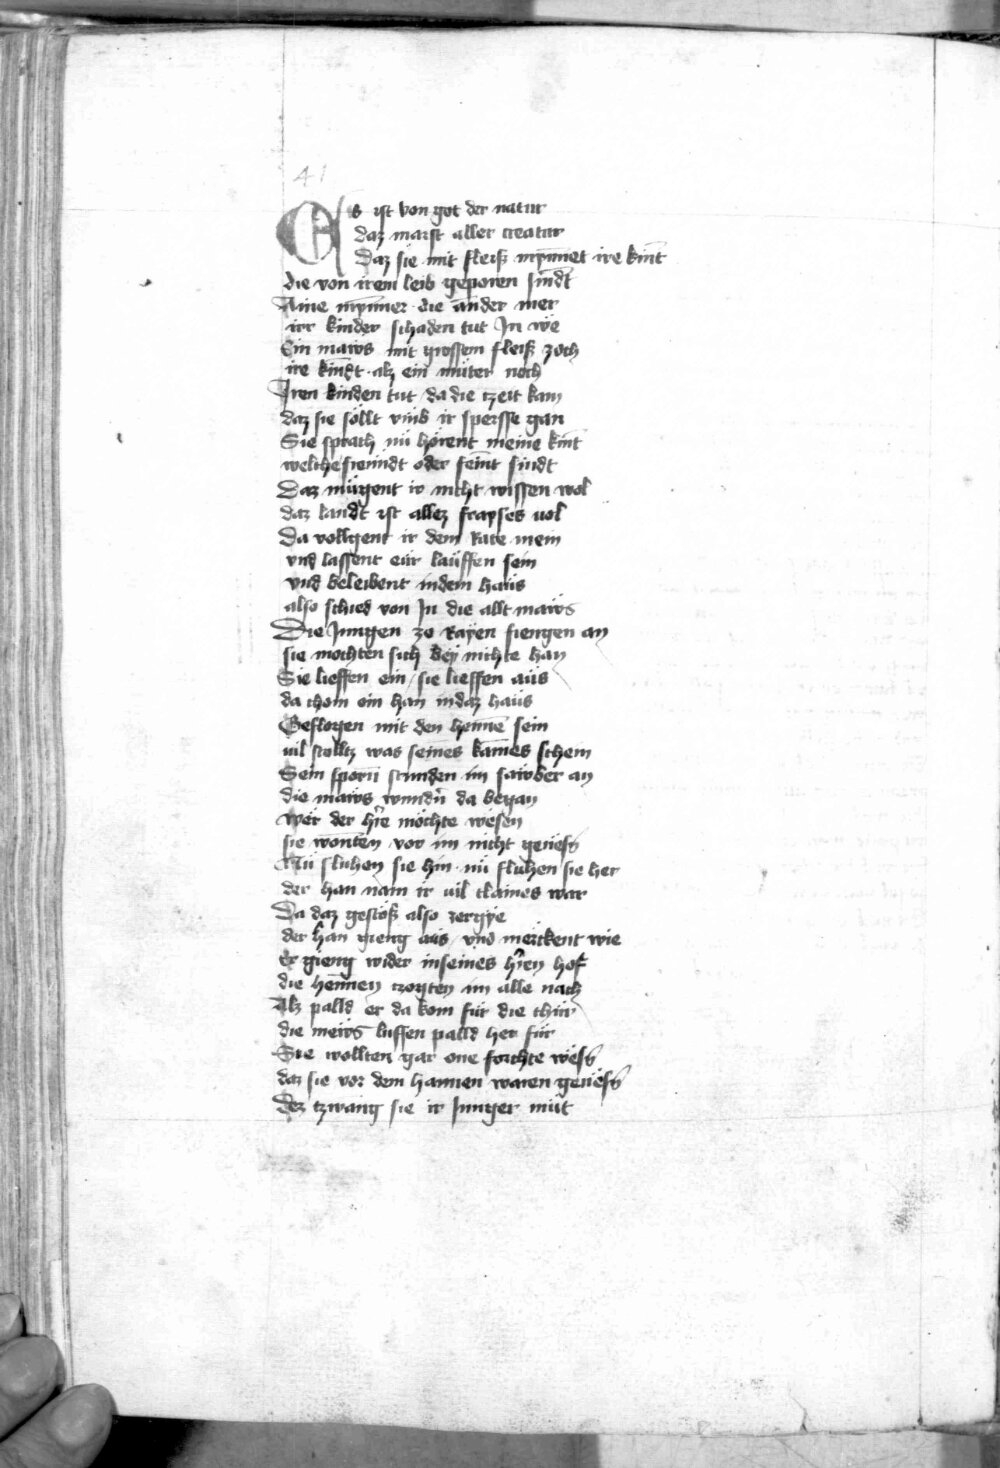 41
Es ist von got der natur
daz maist aller creatur
Daz sie mit fleiß mynnet ire kint
die von irem leib geporen sindt
Aine mynner die ander mer
irr kinder schaden tut Jn we
Ein maws mit grossem fleiß zoch
ire kindt alz ein mu̇ter noch
Jren kinden tut / da die tzeit kam
daz sie söllt vmb ir speysse gan
Sie sprach nu̇ hörent meine kint
welche freindt oder feint sindt
Daz mügent ir nicht wissen wol
daz landt ist allez frayses vol
Da vollgent ir dem Rate mein
vnd lassent eur lauffen sein
vnd beleibent in dem haus
also schied von Jn die allt maws
Die Jungen ze Rayen fiengen an
sie mochten sich bey nichte han
Sie lieffen ein / sie lieffen aus
da chom ein han in daz haus
Geflogen mit den henne sein
vil stolltz was seines kames schein
Sein sporn stunden im sawber an
die maws wundn da began
wer der hre möchte wesen
sie wonten vor im nicht geness
Nu̇ fluhen sie hin nu̇ fluhen sie her
der han nam ir vil claines war
Da daz gestöß also zergye
der han gieng aus / vnd merckent wie
Er gieng wider in seines hren hof
die hennen zogten im alle nach
Alz palld er da kom für die thür
die mews luffen palld her für
Sie wollten gar one forchte wess
daz sie vor dem hannen waren geness
Dez tzwang sie ir Junger mu̇t